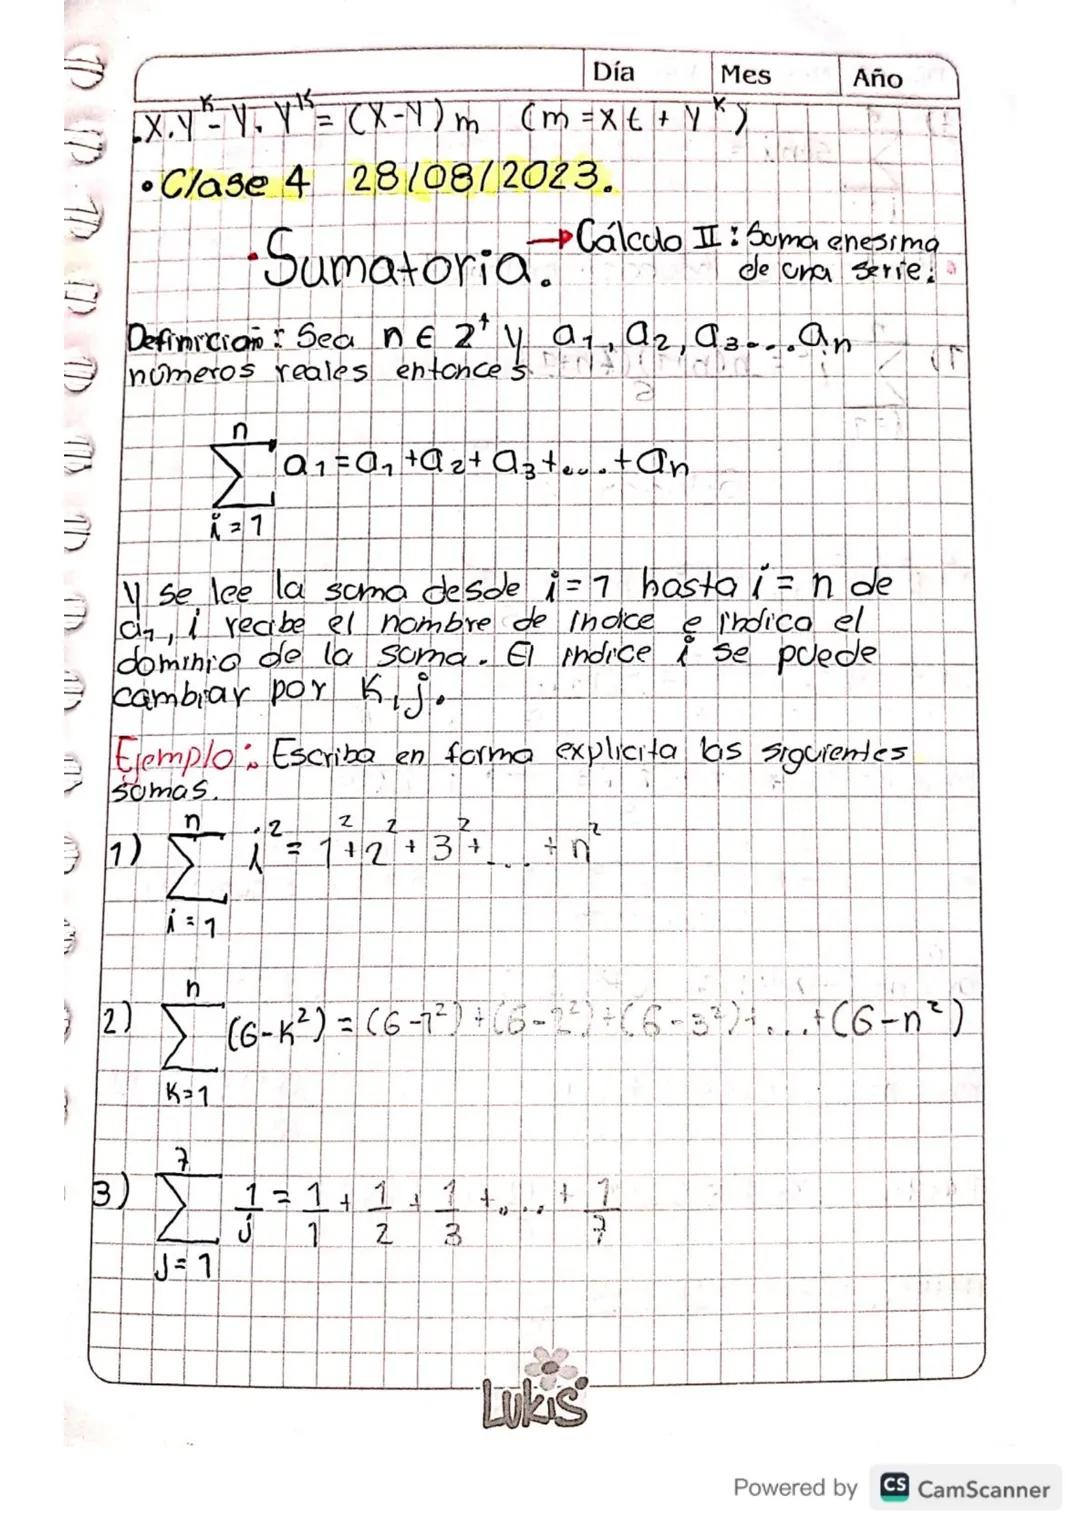 Día Mes Año
.x.y^k - y. y^k = (x-y) m (m = xt + y^k)
• Clase 4 28/08/2023.
• Sumatoria. → Cálculo II : Suma enesima
de una serie.
Definicion : Sea n ∈ Z⁺ y a₁, a₂, a₃....aₙ
números reales entonces
n
∑ a₁ = a₁ + a₂ + a₃ + .... + aₙ
i = 1
y se lee la suma desde i = 1 hasta i = n de
a₁, i recibe el nombre de indice e indica el
dominio de la suma. El indice i se puede
cambiar por K, j.
Ejemplo: Escriba en forma explicita las siguientes
sumas.
n
1) ∑ i² = 1² + 2² + 3² + ... + n²
i = 1
n
2) ∑ (6-k²) = (6-1²) + (6-2²) + (6-3²) + ... + (6-n²)
K=1
7
3) ∑ 1/j = 1/1 + 1/2 + 1/3 + .... + 1/7
J= 1
LUKIS
Powered by CS CamScanner